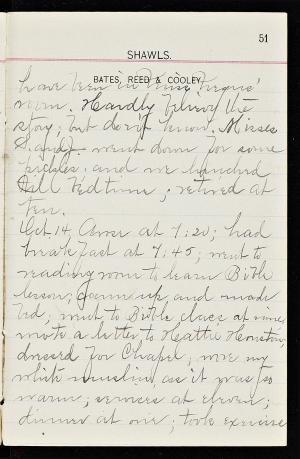 51
SHAWLS.
BATES, REED & COOLEY,
have been in Miss
room. Hardly believe the
story, but don't know. Misses
S. and J. went down for some
pickles; and we
till bedtime; retired at
ten.
Oct 14. Arose at 7:20; had
breakfast at 7:45; went to
reading room to learn Bible
lesson; came up, and made
bed; went to Bible class at nine;
wrote a letter to Hattie Houston;
dressed for Chapel; wore my
white muslin, as it was so
warm; services at eleven;
dinner at one; took exercise